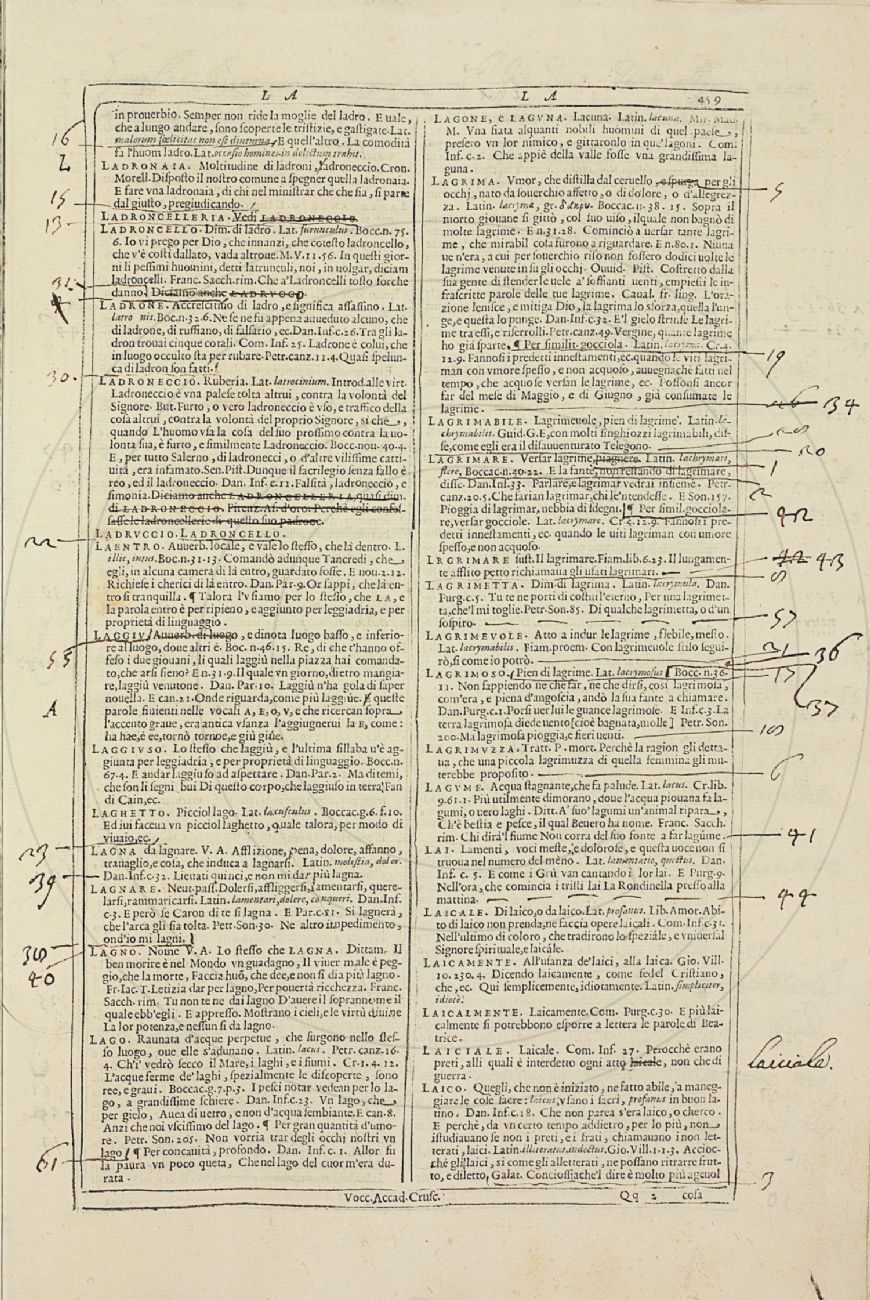 L A
L A
459
in prouerbio. Semper non ride la moglie del ladro. E uale,
che a lungo andare, sono scoperte le tristizie, e gastigate. Lat.
malorum fœlicitas non est diuturna. E quell'altro. La comodità
fa l'huom ladro. Lat. occasio homines in delictum trahit.
LADRONAIA. Moltitudine di ladroni, ladroneccio. Cron.
Morell. Disposto il nostro comune a spegner quella ladronaia.
E fare vna ladronaia, di chi nel ministrar che che sia, si parte
dal giusto, pregiudicando.
LADRONCELLERIA. Vedi LADRONECCIO.
LADRONCELLO. Dim. di ladro. Lat. furunculus. Bocc. n. 75.
6. Io vi prego per Dio, che innanzi, che cotesto ladroncello,
che v'è costì dallato, vada altroue. M. V. 11. 56. In questi gior-
ni li pessimi huomini, detti latrunculi, noi, in uolgar, diciam
ladroncelli. Franc. Sacch. rim. Che a' Ladroncelli tosto forche
danno. Diciamo anche LADRVCCO.
LADRONE. Accrescitiuo di ladro, e significa assassino. Lat.
latro nis. Bocc. n. 32. 6. Ne se ne fu appena aueduto alcuno, che
di ladrone, di ruffiano, di falsario, ec. Dan. Inf. c. 26. Tra gli la-
dron trouai cinque cotali. Com. Inf. 25. Ladrone è colui, che
in luogo occulto sta per rubare. Petr. canz. 11. 4. Quasi spelun-
ca di ladron son fatti.
LADRONECCIO. Ruberia. Lat. latrocinium. Introd. alle virt.
Ladroneccio è vna palese tolta altrui, contra la volontà del
Signore. But. Furto, o vero ladroneccio è vso, e traffico della
cosa altrui, contra la volontà del proprio Signore, sì che,
quando L'huomo vsa la cosa del suo prossimo contra la uo-
lontà sua, è furto, e similmente Ladroneccio. Bocc. nou. 40. 4.
E, per tutto Salerno, di ladronecci, o d'altre vilissime catti-
uità, era infamato. Sen. Pist. Dunque il sacrilegio senza fallo è
reo, ed il ladroneccio. Dan. Inf. c. 11. Falsità, ladroneccio, e
simonia. Diciamo anche LADRONCELLERIA, quasi dim.
di LADRONECCIO. Firenz. As. d'oro. Perchè egli confes-
sasse le ladroncellerie di questo suo padrone.
LADRVCCIO. LADRONCELLO.
LAENTRO. Auuerb. locale, e vale lo stesso, che là dentro. L.
illic, intus. Bocc. n. 31. 13. Comandò adunque Tancredi, che
egli, in alcuna camera di là entro, guardato fosse. E nou. 2. 12.
Richiese i cherici di là entro. Dan. Par. 9. Or sappi, che là en-
tro si tranquilla. ¶ Talora l'vsiamo per lo stesso, che LA, e
la parola entro è per ripieno, e aggiunto per leggiadria, e per
proprietà di linguaggio.
LAGGIV. Auuerb. di luogo, e dinota luogo basso, e inferio-
re al luogo, doue altri è. Boc. n. 46. 15. Re, di che t'hanno of-
feso i due giouani, li quali laggiù nella piazza hai comanda-
to, che arsi sieno? E n. 31. 9. Il quale vn giorno, dietro mangia-
re, laggiù venutone. Dan. Par. 10. Laggiù n'ha gola di saper
nouella. E can. 21. Onde riguarda, come più laggiùe. E queste
parole finienti nelle vocali A, E, O, V, e che ricercan sopra
l'accento graue, era antica vsanza l'aggiugnerui la E, come:
ha hae, è ee, tornò tornoe, e giù giùe.
LAGGIVSO. Lo stesso che laggiù, e l'ultima sillaba u'è ag-
giunta per leggiadria, e per proprietà di linguaggio. Bocc. n.
67. 4. E andar laggiuso ad aspettare. Dan. Par. 2. Ma ditemi,
che son li segni bui Di questo corpo, che laggiuso in terra Fan
di Cain, ec.
LAGHETTO. Picciol lago. Lat. lacusculus. Boccac. g. 6. f. 10.
Ed iui faceua vn picciol laghetto, quale talora, per modo di
viuaio, ec.
LAGNA da lagnare. V. A. Afflizione, pena, dolore, affanno,
trauaglio, e cosa, che induca a lagnarsi. Latin. molestia, dolor.
Dan. Inf. c. 32. Lieuati quinci, e non mi dar più lagna.
LAGNARE. Neut. pass. Dolersi, affliggersi, lamentarsi, quere-
larsi, rammaricarsi. Latin. lamentari, dolere, conqueri. Dan. Inf.
c. 3. E però se Caron di te si lagna. E Par. c. 11. Si lagnerà,
che l'arca gli sia tolta. Petr. Son. 30. Ne altro impedimento,
ond'io mi lagni.
LAGNO. Nome V. A. Lo stesso che LAGNA. Dittam. Il
ben morire è nel Mondo vn guadagno, Il viuer male è peg-
gio, che la morte, Faccia huõ, che dee, e non si dia più lagno.
Fr. Iac. T. Letizia dar per lagno, Per pouertà ricchezza. Franc.
Sacch. rim. Tu non te ne dai lagno D'auere il soprannome il
quale ebb'egli. E appresso. Mostrano i cieli, e le virtù diuine
La lor potenza, e nessun si da lagno.
LAGO. Raunata d'acque perpetue, che surgono nello stes-
so luogo, oue elle s'adunano. Latin. lacus. Petr. canz. 16.
4. Ch'i' vedrò secco il Mare, i laghi, e i fiumi. Cr. 1. 4. 12.
L'acque ferme de' laghi, spezialmente le discoperte, sono
ree, e graui. Boccac. g. 7. p. 3. I pesci notar vedean per lo la-
go, a grandissime schiere. Dan. Inf. c. 23. Vn lago, che
per gielo, Auea di uetro, e non d'acqua sembiante. E can. 8.
Anzi che noi vscissimo del lago. ¶ Per gran quantità d'umo-
re. Petr. Son. 205. Non vorria trar degli occhj nostri vn
lago. ¶ Per concauità, profondo. Dan. Inf. c. 1. Allor fu
la paura vn poco queta, Che nel lago del cuor m'era du-
rata.
LAGONE, e LAGVNA. Lacuna. Latin. lacuna.
M. Vna fiata alquanti nobili huomini di quel paese,
presero vn lor nimico, e gittaronlo in que' lagoni. Com.
Inf. c. 2. Che appiè della valle fosse vna grandissima la-
guna.
LAGRIMA. Vmor, che distilla dal ceruello, e spurga per gli
occhj, nato da souerchio affetto, o di dolore, o d'allegrez-
za. Latin. lacrymæ, gr. δάκρυ. Boccac. n. 38. 15. Sopra il
morto giouane si gittò, col suo uiso, il quale non bagnò di
molte lagrime. E n. 31. 28. Cominciò a uersar tante lagri-
me, che mirabil cosa furono a riguardare. E n. 80. 1. Niuna
ue n'era, a cui per souerchio riso non fossero dodici uolte le
lagrime venute in su gli occhj. Ouuid. Pist. Costretto dalla
sua gente di stender le uele a' soffianti uenti, empiesti le in-
frascritte parole delle tue lagrime. Caual. fr. ling. L'ora-
zion lenisce, e mitiga Dio, la lagrima lo sforza, quella l'un-
ge, e questa lo punge. Dan. Inf. c. 32. E'l gielo strinse Le lagri-
me tra essi, e riserrolli. Petr. canz. 49. Vergine, quante lagrime
ho già sparte. ¶ Per similit. gocciola. Latin. lacryma. Cr. 4.
12. 9. Fannosi i predetti innestamenti, ec. quando le viti lagri-
man con vmore spesso, e non acquoso, auuegnachè fatti nel
tempo, che acquose versan le lagrime, ec. possonsi ancor
far del mese di Maggio, e di Giugno, già consumate le
lagrime.
LAGRIMABILE. Lagrimeuole, pien di lagrime. Latin. la-
chrymabilis. Guid. G. E, con molti singhiozzi lagrimabili, dis-
se, come egli era il disauuenturato Telegono.
LAGRIMARE. Versar lagrime, piagnere. Latin. lachrymari,
flere, Boccac. n. 40. 22. E la fante, non restando di lagrimare,
disse. Dan. Inf. 33. Parlare, e lagrimar vedrai insieme. Petr.
canz. 20. 5. Che farian lagrimar, chi le'ntendesse. E Son. 157.
Pioggia di lagrimar, nebbia di sdegni. ¶ Per simil. gocciola-
re, versar gocciole. Lat. lacrymare. Cr. 4. 12. 9. Fannosi i pre-
detti innestamenti, ec. quando le uiti lagriman con umore
spesso, e non acquoso.
LRGRIMARE sust. Il lagrimare. Fiam. lib. 6. 23. Il lungamen-
te afflitto petto richiamaua gli usati lagrimari.
LAGRIMETTA. Dim. di lagrima. Latin. lacrymula. Dan.
Purg. c. 5. Tu te ne porti di costui l'eterno, Per una lagrimet-
ta, che'l mi toglie. Petr. Son. 85. Di qualche lagrimetta, o d'un
sospiro.
LAGRIMEVOLE. Atto a indur le lagrime, flebile, mesto.
Lat. lacrymabilis. Fiam. proem. Con lagrimeuole stilo segui-
rò, sì come io potrò.
LAGRIMOSO. Pien di lagrime. Lat. lacrymosus Bocc. n. 36.
11. Non sappiendo ne che far, ne che dirsi, così lagrimosa,
com'era, e piena d'angoscia, andò la sua fante a chiamare.
Dan. Purg. c. 1. Porsi uer lui le guance lagrimose. E Inf. c. 3. La
terra lagrimosa diede uento [cioè bagnata, molle] Petr. Son.
200. Ma lagrimosa pioggia, e fieri uenti.
LAGRIMVZZA. Tratt. P. mort. Perchè la ragion gli detta-
ua, che una piccola lagrimuzza di quella femmina gli mu-
terebbe proposito.
LAGVME. Acqua stagnante, che fa palude. Lat. lacus. Cr. lib.
9. 61. 1. Più utilmente dimorano, doue l'acqua piouana fa la-
gumi, o uero laghi. Ditt. A' suo' lagumi un'animal ripara,
Ch'è bestia e pesce, il qual Beuero ha nome. Franc. Sacch.
rim. Chi dirà 'l fiume Non corra del suo fonte a far lagume.
LAI. Lamenti, voci meste, e dolorose, e questa uoce non si
truoua nel numero del meno. Lat. lamentatio, questus. Dan.
Inf. c. 5. E come i Grù van cantando i lor lai. E Purg. 9.
Nell'ora, che comincia i tristi lai La Rondinella presso alla
mattina.
LAICALE. Di laico, o da laico. Lat. profanus. Lib. Amor. Abi-
to di laico non prenda, ne faccia opere laicali. Com. Inf. c. 31.
Nell'ultimo di coloro, che tradirono lo speziale, e vniuersal
Signore spirituale, e laicale.
LAICAMENTE. All'usanza de' laici, alla laica. Gio. Vill.
10. 230. 4. Dicendo laicamente, come fedel Cristiano,
che, ec. Qui semplicemente, idiotamente. Latin. simpliciter,
idiotè.
LAICALMENTE. Laicamente. Com. Purg. c. 30. E più lai-
calmente si potrebbono esporre a lettera le parole di Bea-
trice.
LAICIALE. Laicale. Com. Inf. 27. Perocchè erano
preti, alli quali è interdetto ogni atto laicale, non che di
guerra.
LAICO. Quegli, che non è iniziato, ne fatto abile, a maneg-
giare le cose sacre: laicus, vsano i sacri, profanus in buon la-
tino. Dan. Inf. c. 18. Che non parea s'era laico, o cherco.
E perchè, da vn certo tempo addietro, per lo più, non
istudiauano se non i preti, e i frati, chiamauano i non let-
terati, laici. Latin. illiteratus, indoctus. Gio. Vill. 1. 1. 3. Accioc-
chè gli laici, sì come gli alletterati, ne possano ritrarre frut-
to, e diletto, Galat. Conciossiachè'l dire è molto più ageuol
Vocc. Accad. Crusc.
Qq 2 cosa
16
15
13
30
22
55
A
23
39
30
40
61
5
19
34
20
1
2
42
43
57
31
36
15
37
6
41
44
laiciala.
3